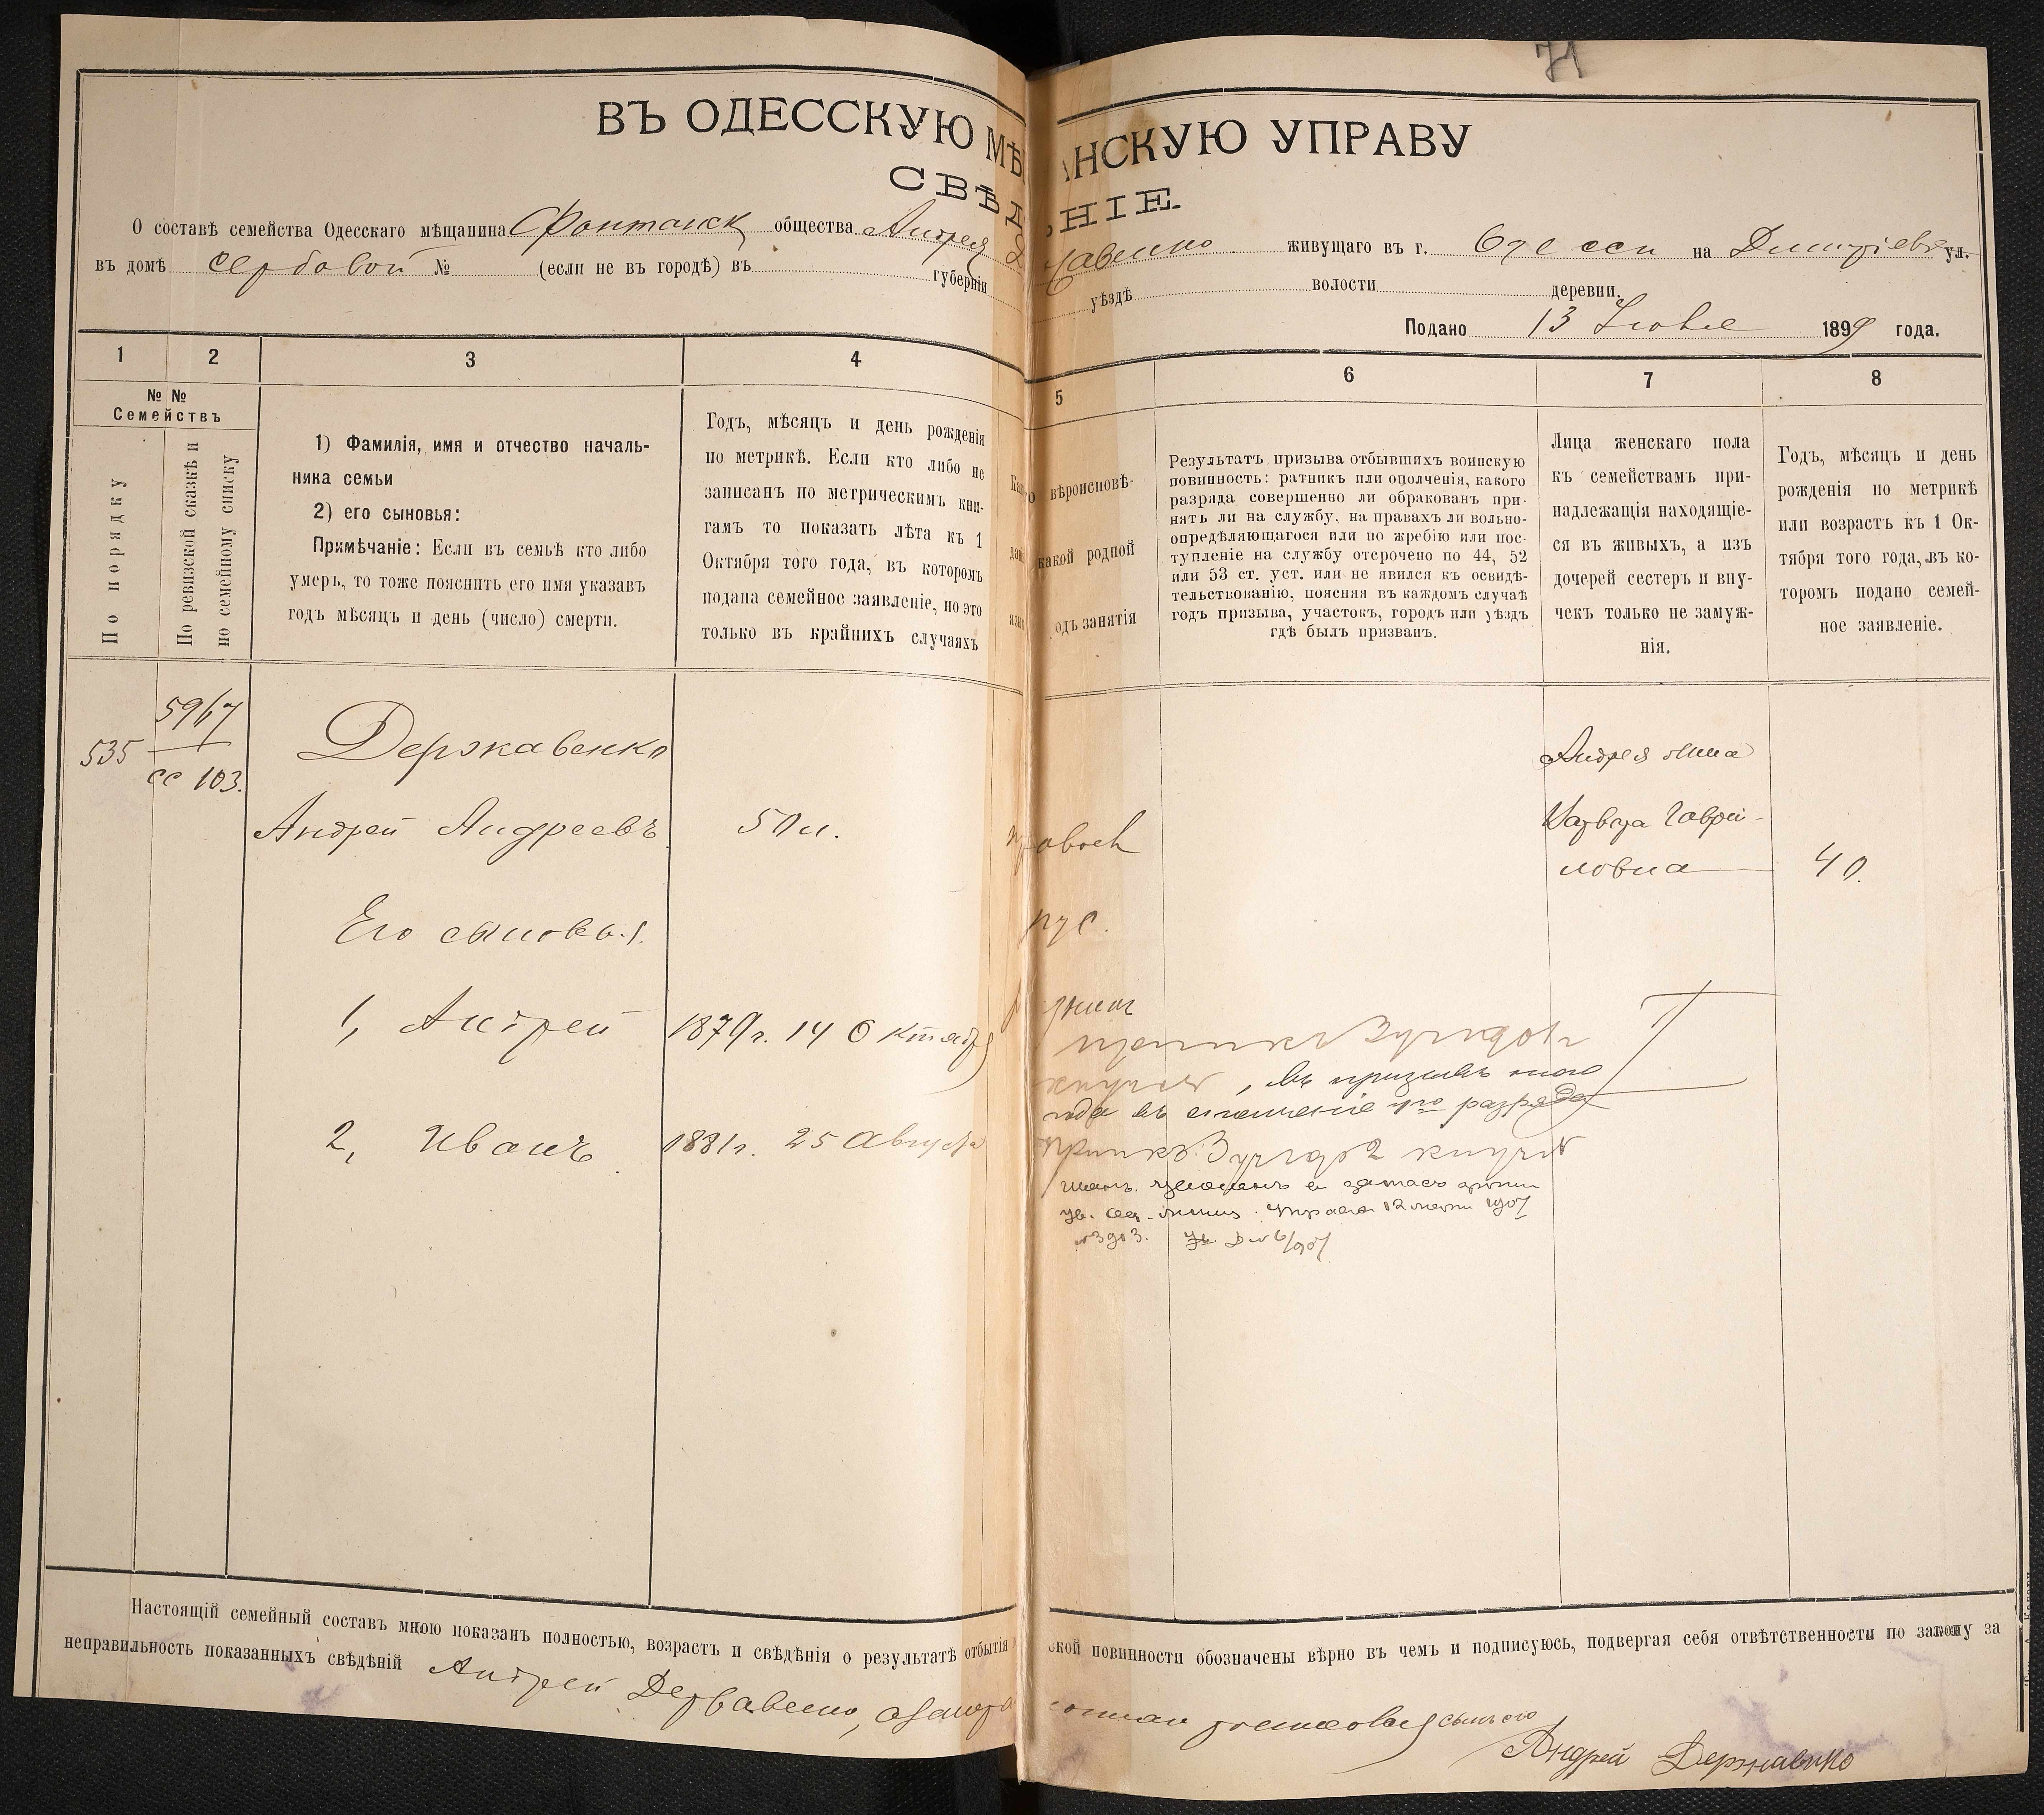 71
ВЪ ОДЕССКУЮ МѢ АНСКУЮ УПРАВУ
СВѢД НІЕ.
О составѣ семейства Одесскаго мѣщанина Фонтанск общества Андрея Д авенко живущаго въ г. Одессы на ул.
въ домѣ Сербовой № (если не въ городѣ) въ губерніи уѣздѣ волости деревни.
Подано 13 1899 года.
1 2 3 4 5 6 7 8
№ №
Семействъ
По порядку
По ревизской сказкѣ и
по семейному списку
1) Фамилія, имя и отчество началь-
ника семьи
2) его сыновья:
Примѣчаніе: Если въ семьѣ кто либо
умеръ, то тоже пояснить его имя указавъ
годъ мѣсяцъ и день (число) смерти.
Годъ, мѣсяцъ и день рожденія
по метрикѣ. Если кто либо не
записанъ по метрическимъ кни-
гамъ то показать лѣта къ 1
Октября того года, въ которомъ
подана семейное заявленіе, но это
только въ крайнихъ случаяхъ
вѣроисповѣ-
какой родной
одъ занятія
Результатъ призыва отбывшихъ воинскую
повинность: ратникъ или ополченія, какого
разряда совершенно ли обракованъ при-
нятъ ли на службу, на правахъ ли вольно-
опредѣляющагося или по жребію или пос-
тупленіе на службу отсрочено по 44, 52
или 53 ст. уст. или не явился къ освидѣ-
тельствованію, поясняя въ каждомъ случаѣ
годъ призыва, участокъ, городъ или уѣздъ
гдѣ былъ призванъ.
Лица женскаго пола
къ семействамъ при-
надлежащія находящіе-
ся въ живыхъ, а изъ
дочерей сестеръ и вну-
чекъ только не замуж-
нія.
Годъ, мѣсяцъ и день
рожденія по метрикѣ
или возрастъ къ 1 Ок-
тября того года, въ ко-
торомъ подано семей-
ное заявленіе.
535
5967
сс 103.
Державенко
Андрей Андреевъ 50 л.
Его сыновья.
1, Андрей 1879 г. 14 Октября
2, Иванъ 1881 г. 25 Августа
п авосл
рус.
, въ призывъ
года въ ополченіе 1го разряда
12 1907
№ 3903.
Андрея жена
Гаври-
ловна 40.
Настоящій семейный составъ мною показанъ полностью, возрастъ и свѣдѣнія о результатѣ отбытія ской повинности обозначены вѣрно въ чемъ и подписуюсь, подвергая себя отвѣтственности по закону за
неправильность показанныхъ свѣдѣній Андрей Державенко, а
сынъ его
Андрей Державенко